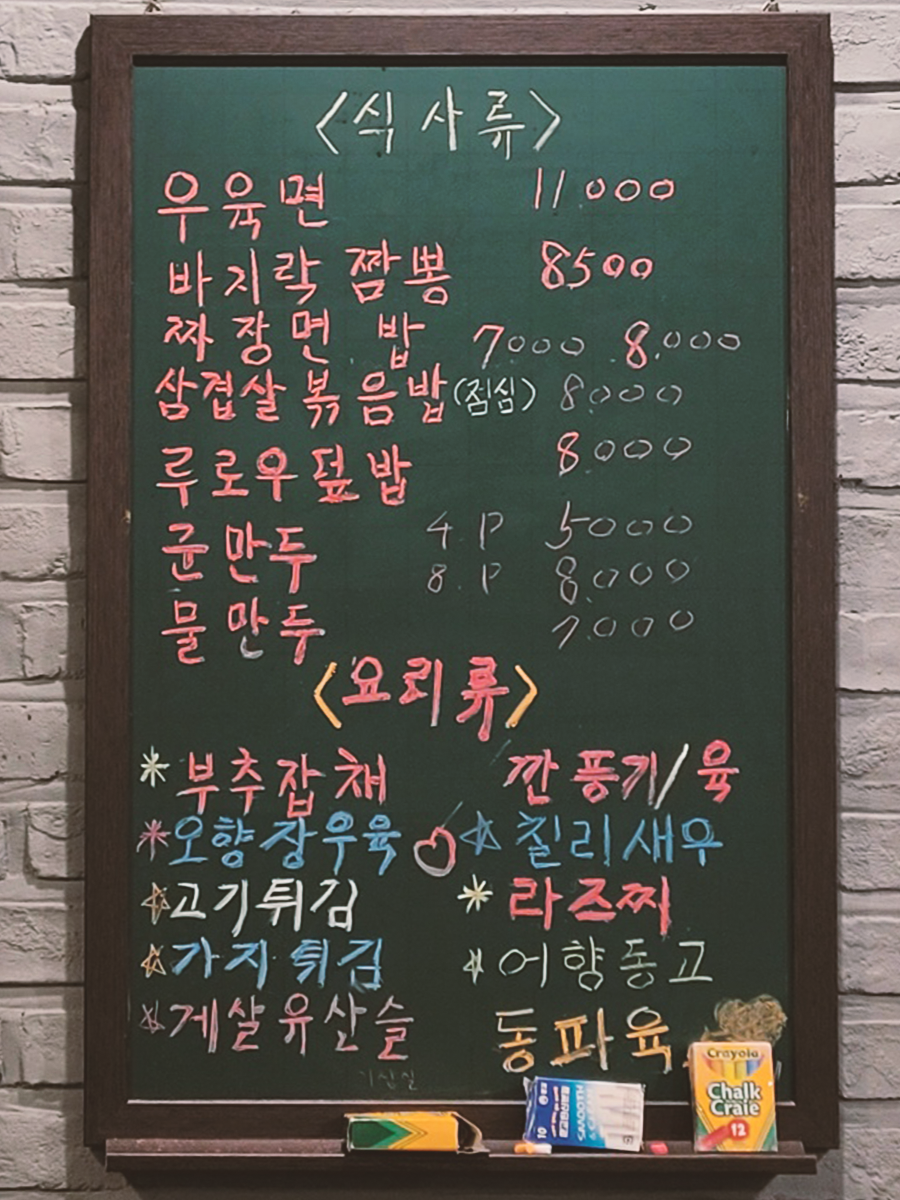 <식사류>
우육면 11000
바지락 짬뽕 8500
짜장면 밥 7000 8.000
삼겹살볶음밥(점심) 8.000
루로우덮밥 8.000
군만두 4.P 5000
8.P 8.000
물만두 7.000
<요리류>
*부추잡채 깐풍기/육
*오향장우육 ☆칠리새우
☆고기튀김 *라즈찌
☆가지튀김 ☆어향동고
☆게살유산슬 동파육
Crayola
Chalk
Craie
12
10